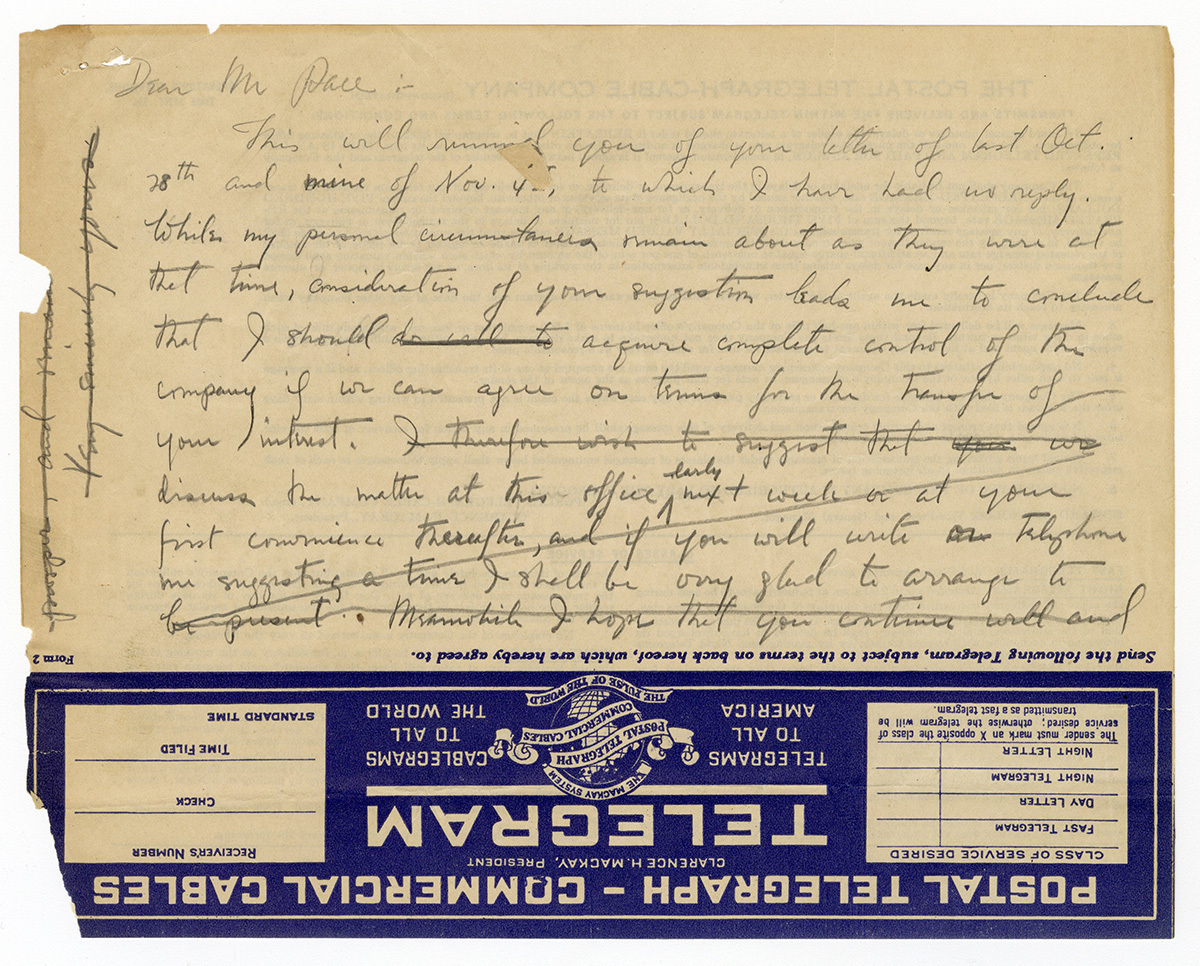 Dear Mr Pace :-
This will remind you of your letter of last Oct.
28th and mine of Nov. 4th, to which I have had no reply.
While my personal circumstances remain about as they were at
that time, consideration of your suggestion leads me to conclude
that I should do well to acquire complete control of the
company if we can agree on terms for the transfer of
your interest. I therefore wish to suggest that you we
discuss the matter at this office early next week or at your
first convenience thereafter, and if you will write or telephone
me suggesting a time I shall be very glad to arrange to
be present. Meanwhile I hope that you continue well and
prosper, and remain
Very sincerely yours
Send the following Telegram, subject to the terms on back hereof, which are hereby agreed to.
Form 2
POSTAL TELEGRAPH - COMMERCIAL CABLES
CLARENCE H. MACKAY, PRESIDENT
TELEGRAM
CLASS OF SERVICE DESIRED
FAST TELEGRAM
DAY LETTER
NIGHT TELEGRAM
NIGHT LETTER
The sender must mark an X opposite the class of
service desired; otherwise the telegram will be
transmitted as a fast telegram.
TELEGRAMS
TO ALL
AMERICA
THE MACKAY SYSTEM
POSTAL TELEGRAPH
COMMERCIAL CABLES
THE PULSE OF THE WORLD
CABLEGRAMS
TO ALL
THE WORLD
RECEIVER'S NUMBER
CHECK
TIME FILED
STANDARD TIME